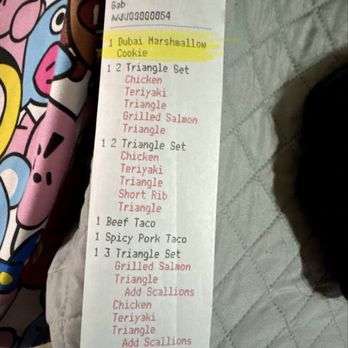 Gab
1 Dubai Marshmallow
Cookie
1 2 Triangle Set
Chicken
Teriyaki
Triangle
Grilled Salmon
Triangle
1 2 Triangle Set
Chicken
Teriyaki
Triangle
Short Rib
Triangle
1 Beef Taco
1 Spicy Pork Taco
1 3 Triangle Set
Grilled Salmon
Triangle
Add Scallions
Chicken
Teriyaki
Triangle
Add Scallions